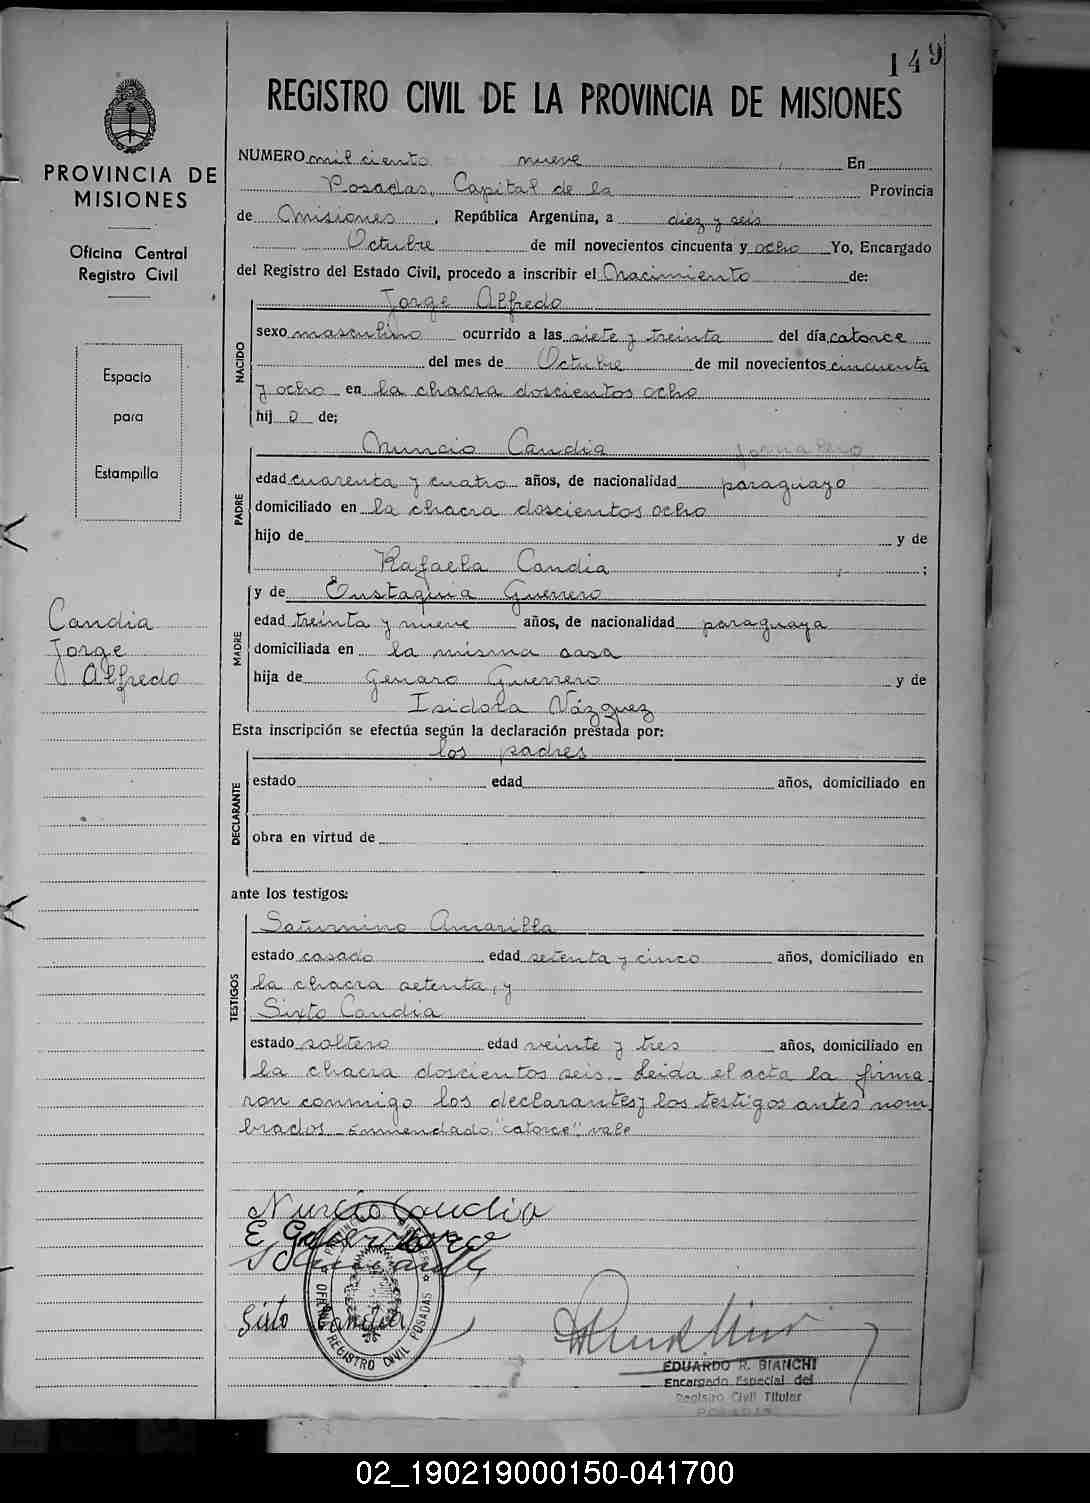 149
REGISTRO CIVIL DE LA PROVINCIA DE MISIONES
PROVINCIA DE
MISIONES
Oficina Central
Registro Civil
Espacio
para
Estampilla
Candia
Jorge
Alfredo
NUMERO mil ciento nueve En
Posadas, Capital de la Provincia
de Misiones, República Argentina, a diez y seis
Octubre de mil novecientos cincuenta y ocho Yo, Encargado
del Registro del Estado Civil, procedo a inscribir el Nacimiento de:
NACIDO
Jorge Alfredo
sexo masculino ocurrido a las siete y treinta del día catorce
del mes de Octubre de mil novecientos cincuenta
y ocho en la chacra doscientos ocho
hij o de;
PADRE
Nuncio Candia jornalero
edad cuarenta y cuatro años, de nacionalidad paraguayo
domiciliado en la chacra doscientos ocho
hijo de y de
Rafaela Candia ;
MADRE
y de Eustaquia Guerrero
edad treinta y nueve años, de nacionalidad paraguaya
domiciliada en la misma casa
hija de Genaro Guerrero y de
Isidora Vázquez
Esta inscripción se efectúa según la declaración prestada por:
los padres
DECLARANTE
estado edad años, domiciliado en
obra en virtud de
ante los testigos:
TESTIGOS
Saturnino Amarilla
estado casado edad setenta y cinco años, domiciliado en
la chacra setenta, y
Sixto Candia
estado soltero edad veinte y tres años, domiciliado en
la chacra doscientos seis. Leida el acta la firma
ron conmigo los declarantes y los testigos antes nom
brados. Enmendado "catorce", vale
Nuncio Candia
E Guerrero
Sixto Candia
OFICINA REGISTRO CIVIL POSADAS
EDUARDO R. BIANCHI
Encargado Especial del
Registro Civil Titular
POSADAS
02_190219000150-041700